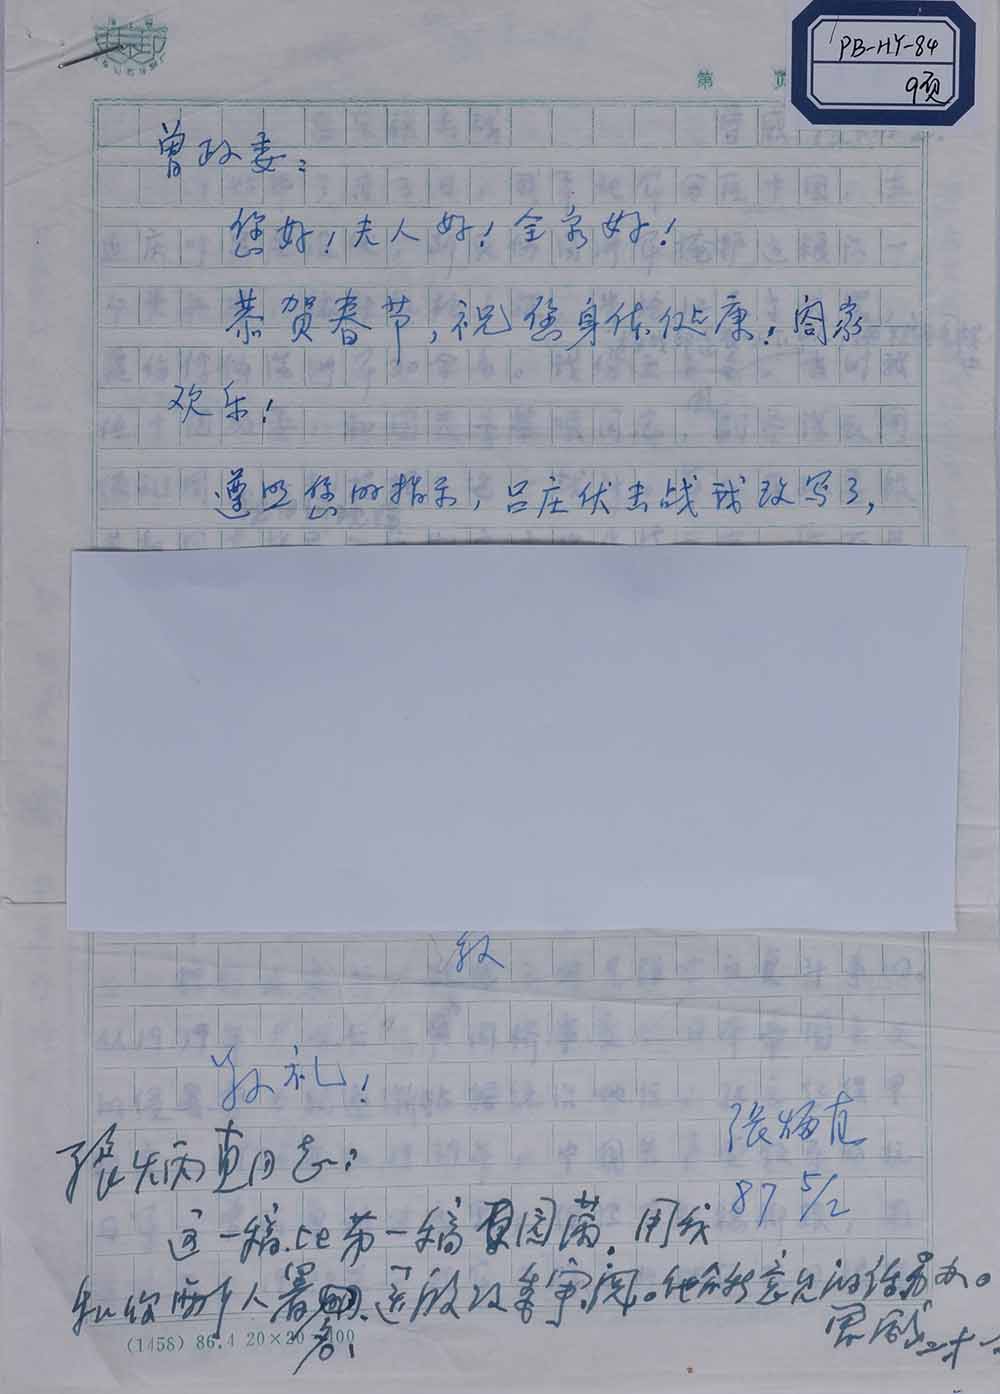 PB-HY-84
9页
第 页
曾政委：
您好！夫人好！全家好！
恭贺春节，祝您身体健康，阖家
欢乐！
遵照您的指示，吕庄伏击战我改写了，
致
敬礼！
张炳直
87 5/2
张炳直同志：
这一稿比第一稿更圆满。用我
和你两个人署名，送政委审阅。他的意见的话另办。
(1458) 86.4 20×20=400